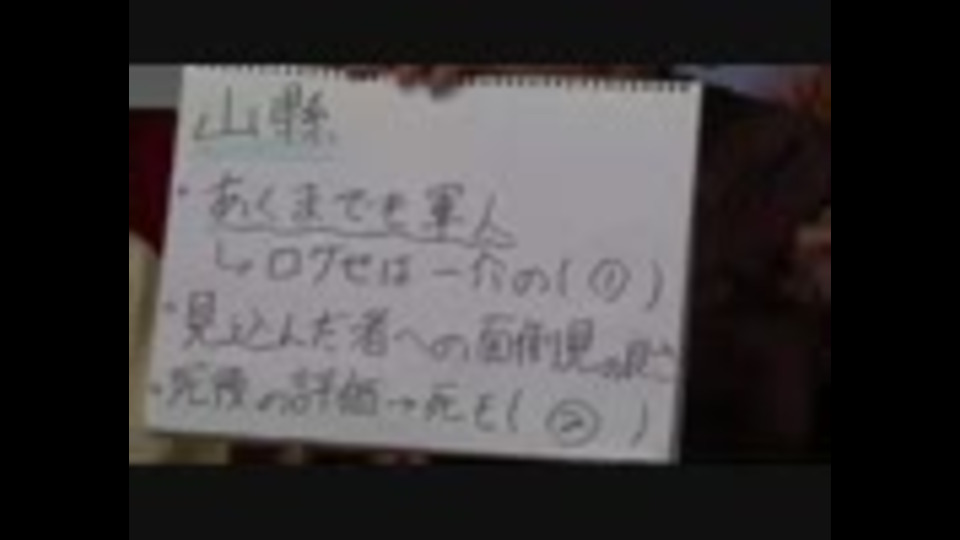 山縣
・あくまでも軍人
↳口グせは一介の(①)
・見込んだ者への面倒見の良さ
・死後の評価→死も(②)